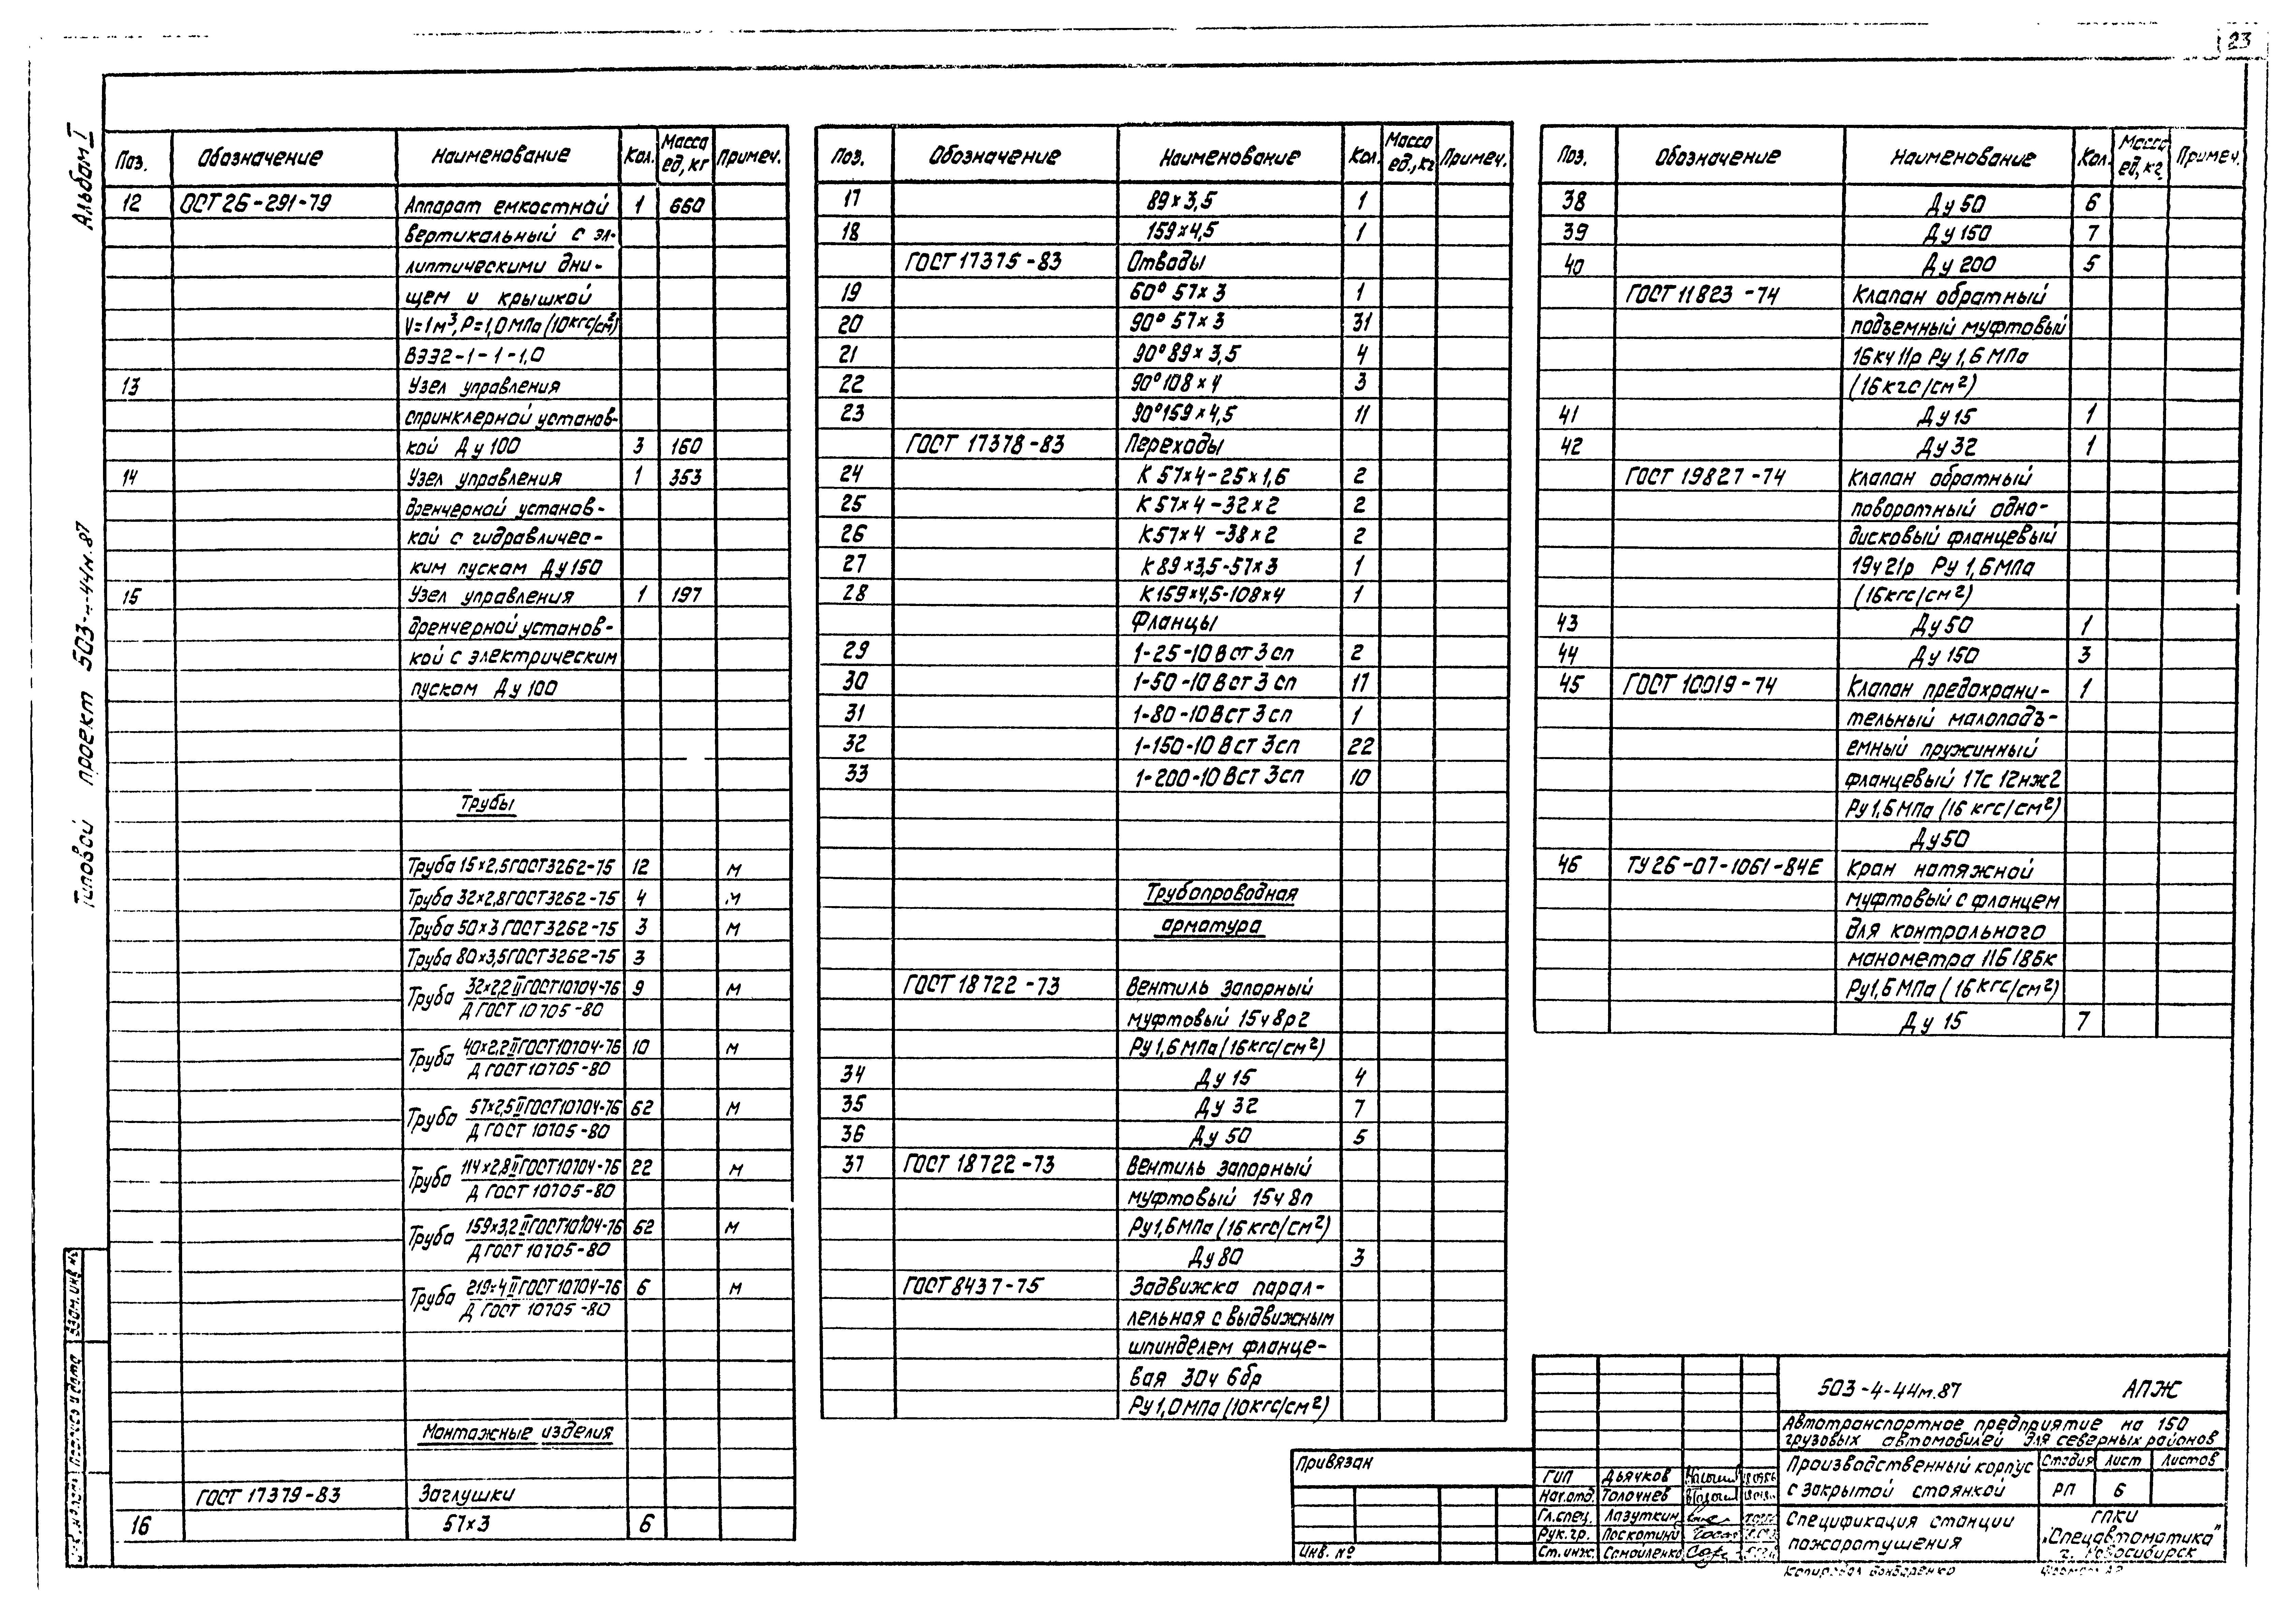 23
Альбом I
Типовой проект 503-4-44м.87
Поз. Обозначение Наименование Кол. Масса ед, кг Примеч.
12 ОСТ 26-291-79 Аппарат емкостной 1 660
вертикальный с эл-
липтическими дни-
щем и крышкой
V=1м³, Р=1,0МПа (10кгс/см²)
ВЭЭ2-1-1-1,0
13 Узел управления
спринклерной установ-
кой Ду 100 3 160
14 Узел управления 1 353
дренчерной установ-
кой с гидравличес-
ким пуском Ду 150
15 Узел управления 1 197
дренчерной установ-
кой с электрическим
пуском Ду 100
Трубы
Труба 15×2,5 ГОСТ 3262-75 12 м
Труба 32×2,8 ГОСТ 3262-75 4 м
Труба 50×3 ГОСТ 3262-75 3 м
Труба 80×3,5 ГОСТ 3262-75 3
Труба 32×2,2 II ГОСТ 10704-76 9 м
Д ГОСТ 10705-80
Труба 40×2,2 II ГОСТ 10704-76 10 м
Д ГОСТ 10705-80
Труба 57×2,5 II ГОСТ 10704-76 62 м
Д ГОСТ 10705-80
Труба 114×2,8 II ГОСТ 10704-76 22 м
Д ГОСТ 10705-80
Труба 159×3,2 II ГОСТ 10704-76 62 м
Д ГОСТ 10705-80
Труба 219×4 II ГОСТ 10704-76 6 м
Д ГОСТ 10705-80
Монтажные изделия
ГОСТ 17379-83 Заглушки
16 57×3 6
Поз. Обозначение Наименование Кол. Масса ед., кг Примеч.
17 89×3,5 1
18 159×4,5 1
ГОСТ 17375-83 Отводы
19 60° 57×3 1
20 90° 57×3 31
21 90° 89×3,5 4
22 90° 108×4 3
23 90° 159×4,5 11
ГОСТ 17378-83 Переходы
24 К 57×4-25×1,6 2
25 К 57×4-32×2 2
26 К 57×4-38×2 2
27 К 89×3,5-57×3 1
28 К 159×4,5-108×4 1
Фланцы
29 1-25-10 В ст 3 сп 2
30 1-50-10 В ст 3 сп 17
31 1-80-10 В ст 3 сп 1
32 1-150-10 В ст 3 сп 22
33 1-200-10 В ст 3 сп 10
Трубопроводная
арматура
ГОСТ 18722-73 Вентиль запорный
муфтовый 15ч8р2
Ру 1,6 МПа (16кгс/см²)
34 Ду 15 4
35 Ду 32 7
36 Ду 50 5
37 ГОСТ 18722-73 Вентиль запорный
муфтовый 15ч8п
Ру 1,6 МПа (16кгс/см²)
Ду 80 3
ГОСТ 8437-75 Задвижка парал-
лельная с выдвижным
шпинделем фланце-
вая 30ч6бр
Ру 1,0 МПа (10кгс/см²)
Поз. Обозначение Наименование Кол. Масса ед, кг Примеч.
38 Ду 50 6
39 Ду 150 7
40 Ду 200 5
ГОСТ 11823-74 Клапан обратный
подъемный муфтовый
16кч11р Ру 1,6 МПа
(16кгс/см²)
41 Ду 15 1
42 Ду 32 1
ГОСТ 19827-74 Клапан обратный
поворотный одно-
дисковый фланцевый
19ч21р Ру 1,6 МПа
(16кгс/см²)
43 Ду 50 1
44 Ду 150 3
45 ГОСТ 10019-74 Клапан предохрани- 1
тельный малоподъ-
емный пружинный
фланцевый 17с12нж2
Ру 1,6 МПа (16 кгс/см²)
Ду 50
46 ТУ 26-07-1061-84Е Кран натяжной
муфтовый с фланцем
для контрольного
манометра 11б18бк
Ру 1,6 МПа (16кгс/см²)
Ду 15 7
503-4-44м.87 АПЖ
Автотранспортное предприятие на 150
грузовых автомобилей для северных районов
Производственный корпус
с закрытой стоянкой
Стадия Лист Листов
РП 6
Спецификация станции
пожаротушения
ГПКИ
"Спецавтоматика"
г. Новосибирск
ГИП Дьячков
Нач.отд. Толочнев
Гл.спец. Лазуткин
Рук.гр. Поскотини
Ст.инж. Самойленко
Привязан
Инв. №
Копировал Бондаренко
Формат А2
Взам. инв. №
Подпись и дата